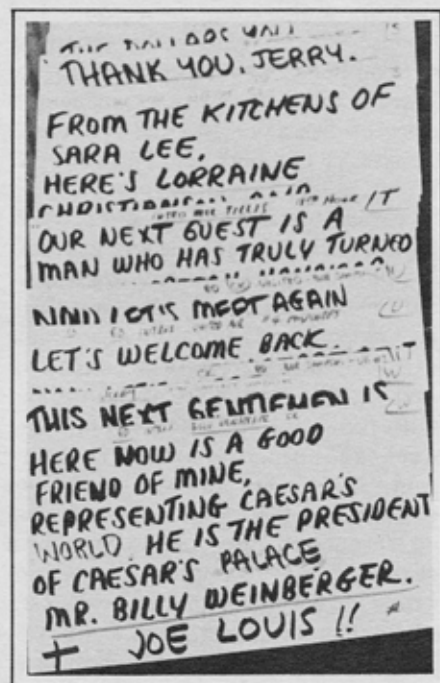 THANK YOU, JERRY.
FROM THE KITCHENS OF
SARA LEE,
HERE'S LORRAINE
CHRISTIANSEN AND
IT
OUR NEXT GUEST IS A
MAN WHO HAS TRULY TURNED
LET'S MEET AGAIN
LET'S WELCOME BACK
THIS NEXT GENTLEMEN IS
HERE NOW IS A GOOD
FRIEND OF MINE,
REPRESENTING CAESAR'S
WORLD. HE IS THE PRESIDENT
OF CAESAR'S PALACE
MR. BILLY WEINBERGER.
+ JOE LOUIS !!